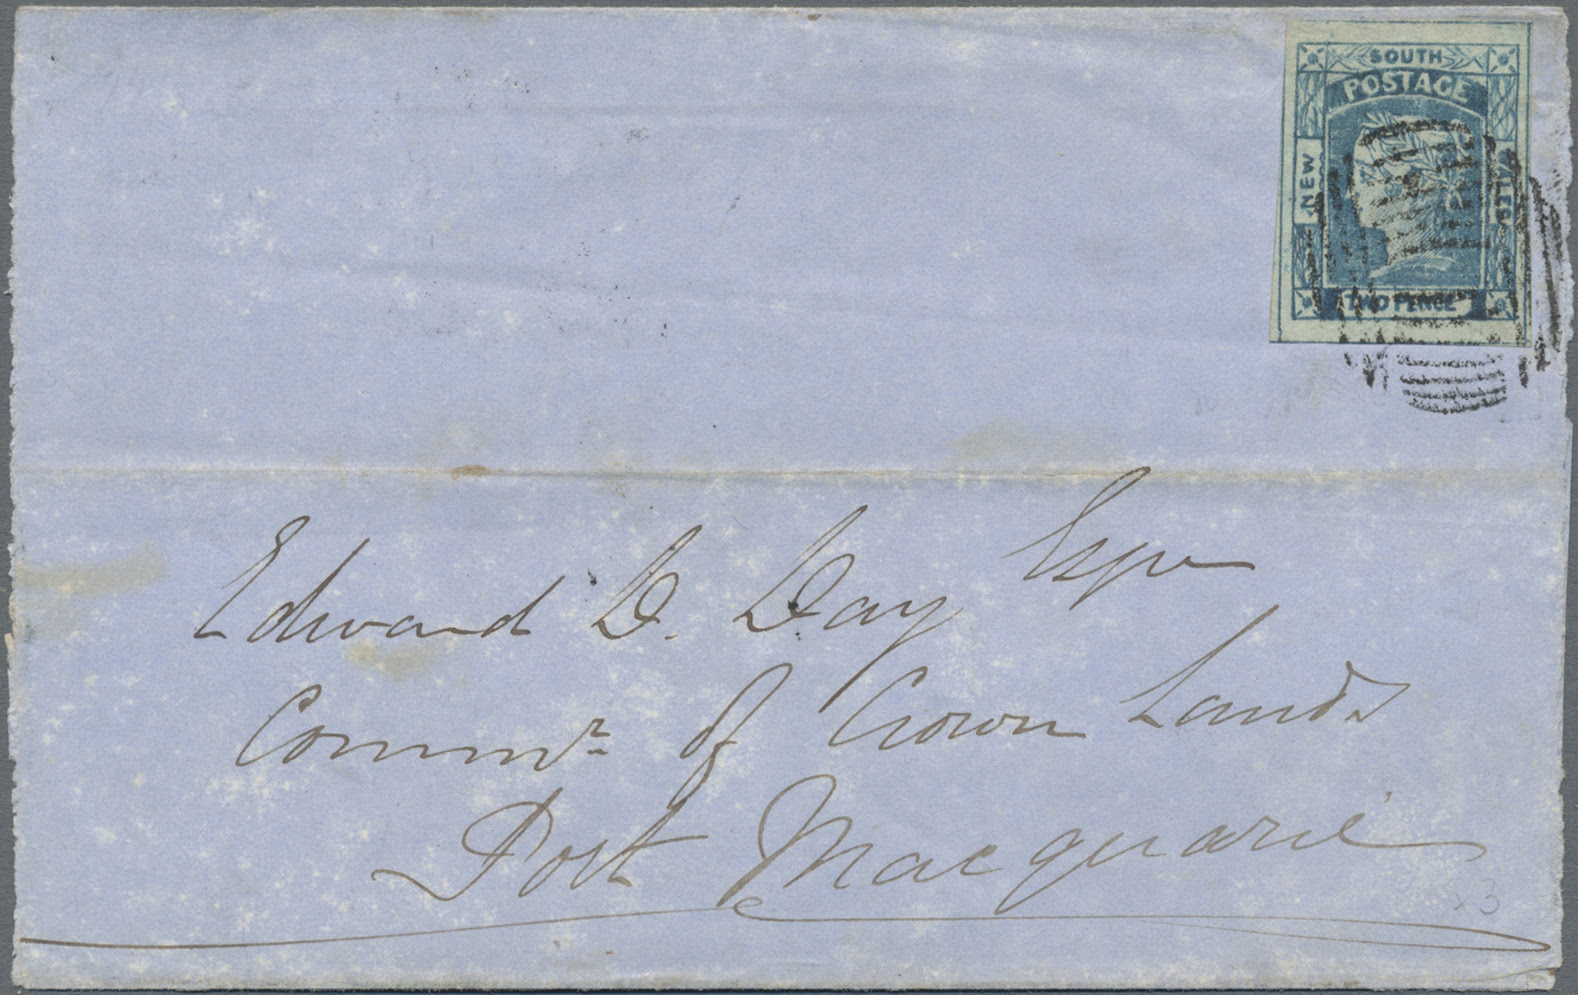 SOUTH
POSTAGE
NEW
WALES
TWO PENCE
Edward D. Day Esqre
Commr. of Crown Lands
Port Macquarie
x3